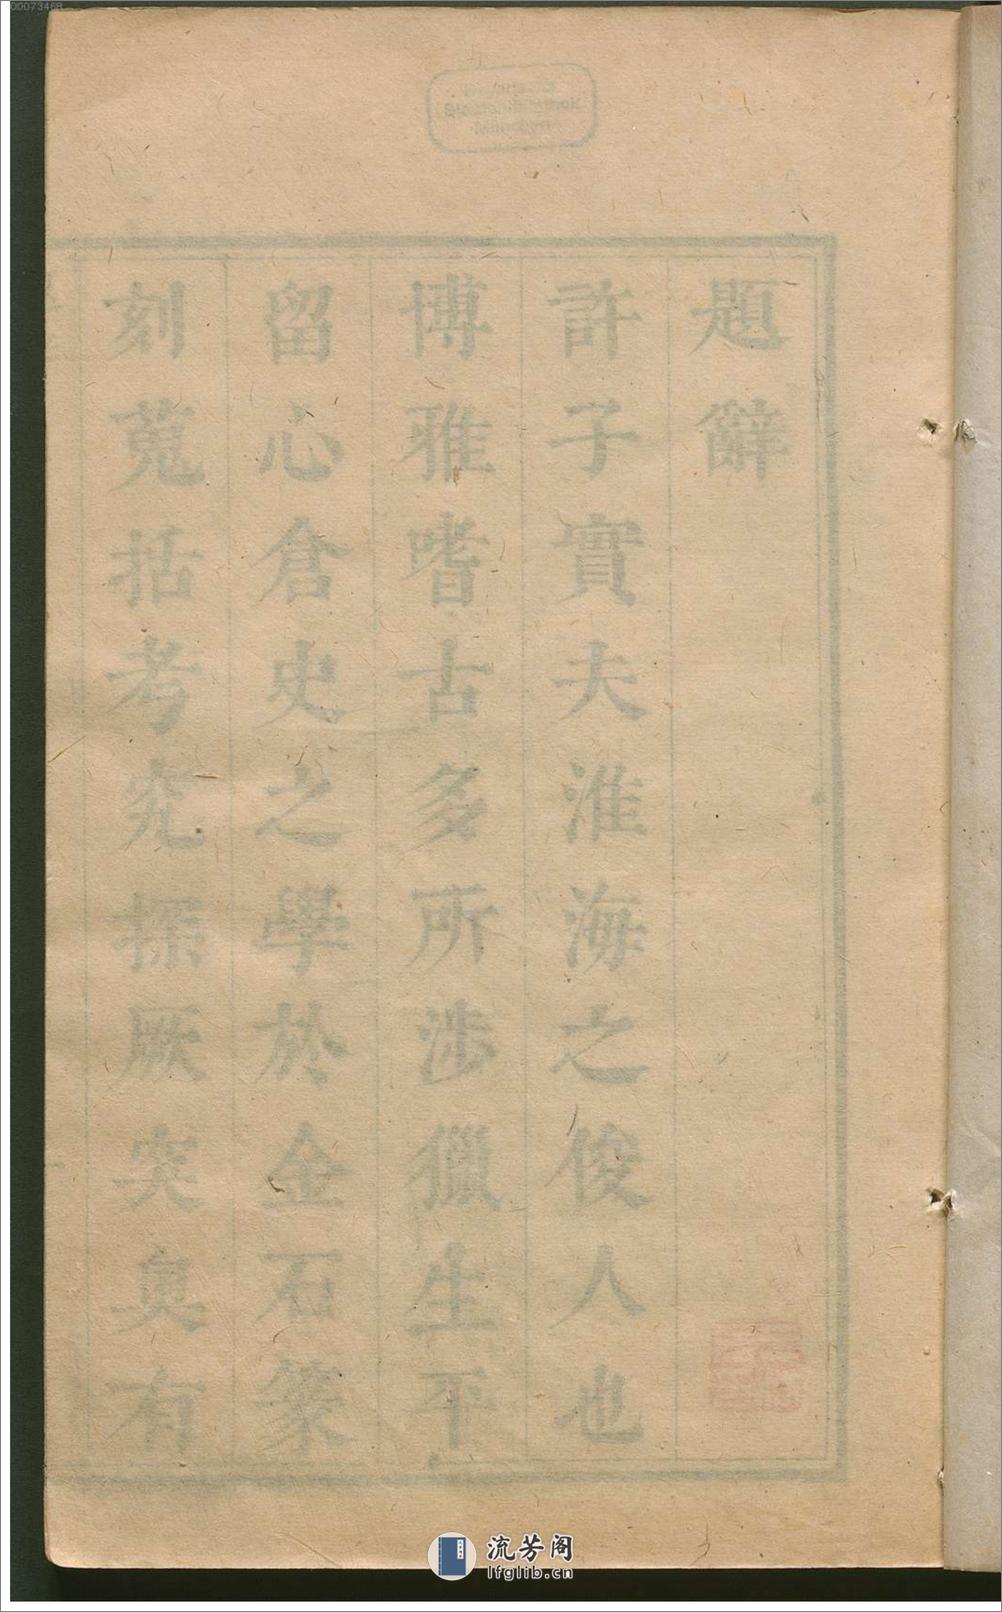 00073468
題辭
許子實夫淮海之俊人也
博雅嗜古多所涉獵生平
留心倉史之學於金石篆
刻蒐括考究探厥突奧有
流芳阁
lfglib.cn